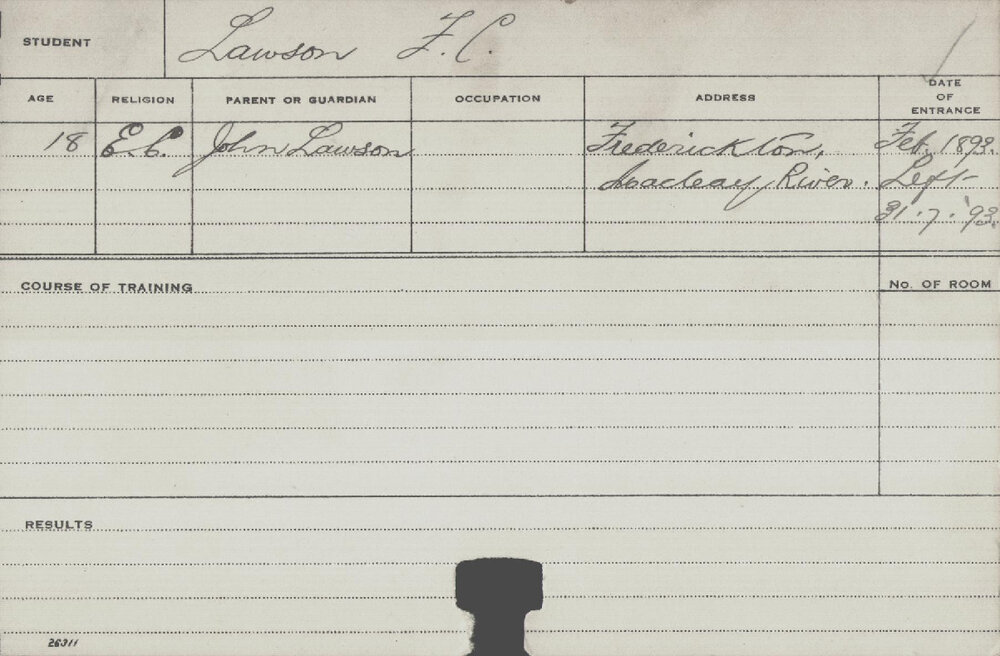 STUDENT Lawson F. C.
AGE RELIGION PARENT OR GUARDIAN OCCUPATION ADDRESS DATE OF ENTRANCE
18 E.C. John Lawson Frederickton, Feb. 1893.
Macleay River. Left
31.7.'93.
COURSE OF TRAINING No. OF ROOM
RESULTS
26311